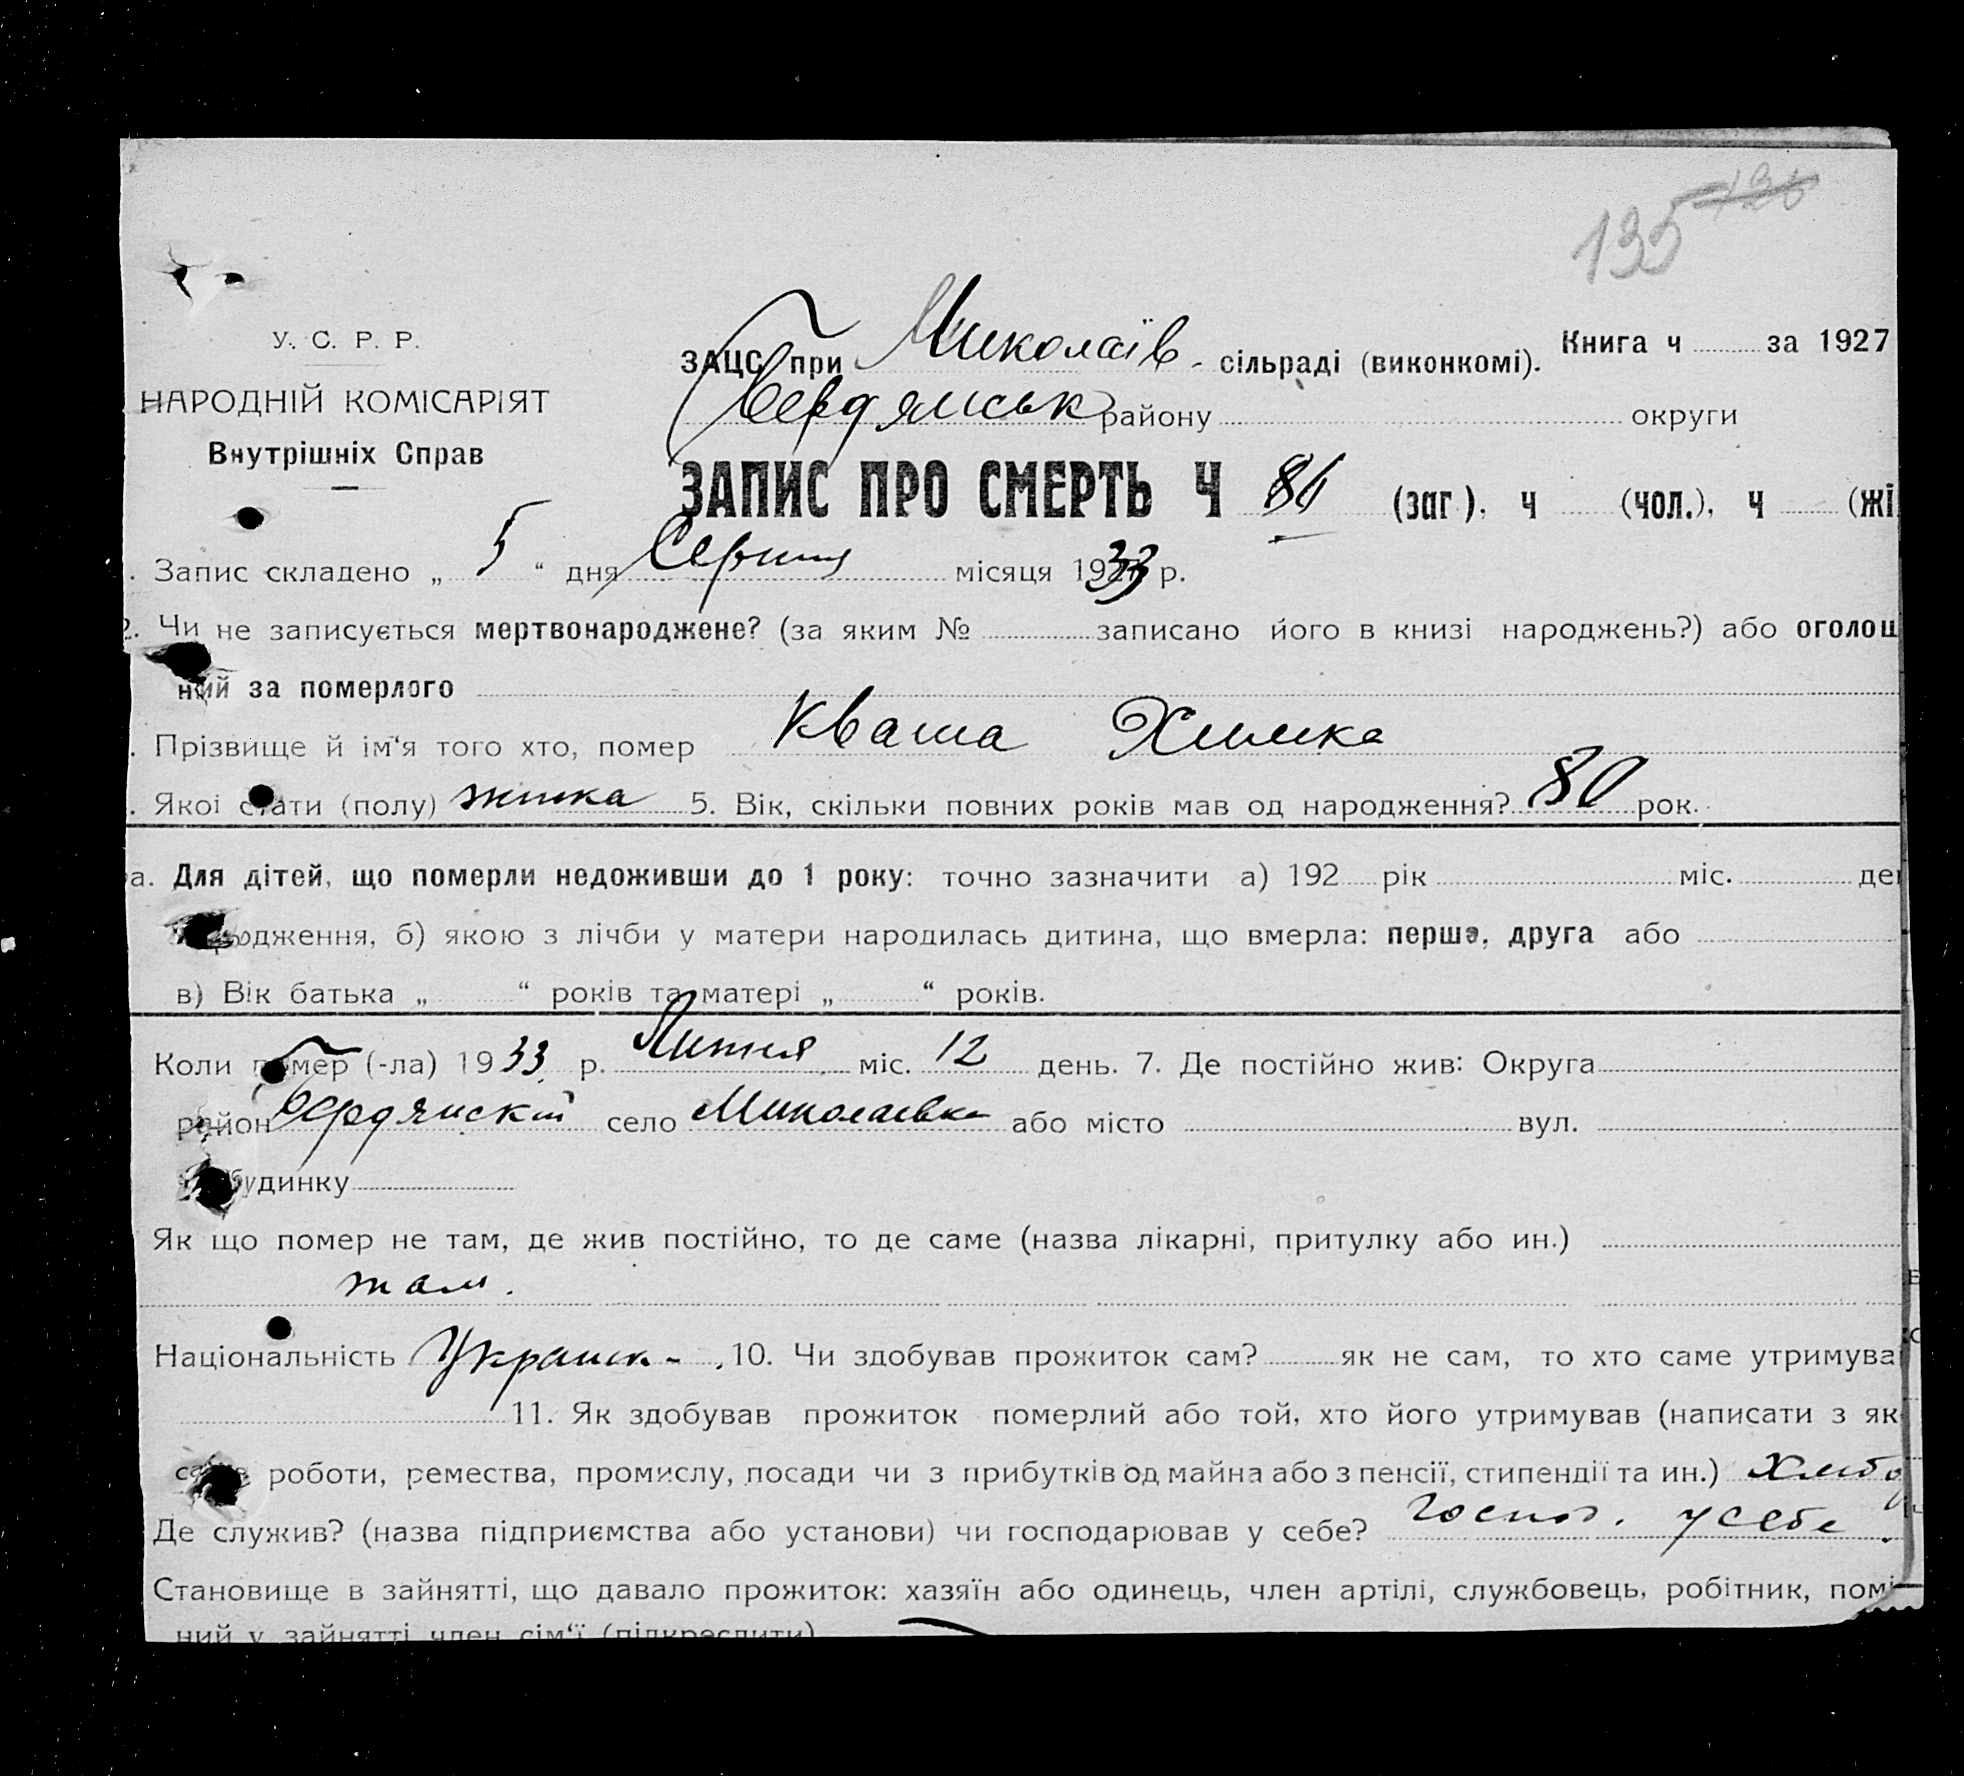 135 126
У. С. Р. Р.
НАРОДНІЙ КОМІСАРІЯТ
Внутрішніх Справ
ЗАЦС при Миколаїв- сільраді (виконкомі). Книга ч за 1927
Бердянськ району округи
ЗАПИС ПРО СМЕРТЬ Ч 86 (заг.), ч (чол.), ч (жі
. Запис складено „ 5 “ дня Серпня місяця 1933 р.
2. Чи не записується мертвонароджене? (за яким № записано його в книзі народжень?) або оголош
ний за померлого
. Прізвище й ім'я того хто, помер Кваша Химка
. Якої стати (полу) жінка 5. Вік, скільки повних років мав од народження? 80 рок.
а. Для дітей, що померли недоживши до 1 року: точно зазначити а) 192 рік міс. ден
народження, б) якою з лічби у матери народилась дитина, що вмерла: перша, друга або
в) Вік батька „ “ років та матері „ “ років.
Коли помер (-ла) 1933 р. Липня міс. 12 день. 7. Де постійно жив: Округа
район Бердянский село Миколаевка або місто вул.
будинку
Як що помер не там, де жив постійно, то де саме (назва лікарні, притулку або ин.)
там.
Національність Украинк- . 10. Чи здобував прожиток сам? як не сам, то хто саме утримува
11. Як здобував прожиток померлий або той, хто його утримував (написати з як
роботи, ремества, промислу, посади чи з прибутків од майна або з пенсії, стипендії та ин.) Хлибо
Де служив? (назва підприємства або установи) чи господарював у себе? господ. у себе.
Становище в зайнятті, що давало прожиток: хазяїн або одинець, член артілі, службовець, робітник, помі-
ний у зайнятті член сім'ї (підкреслити)